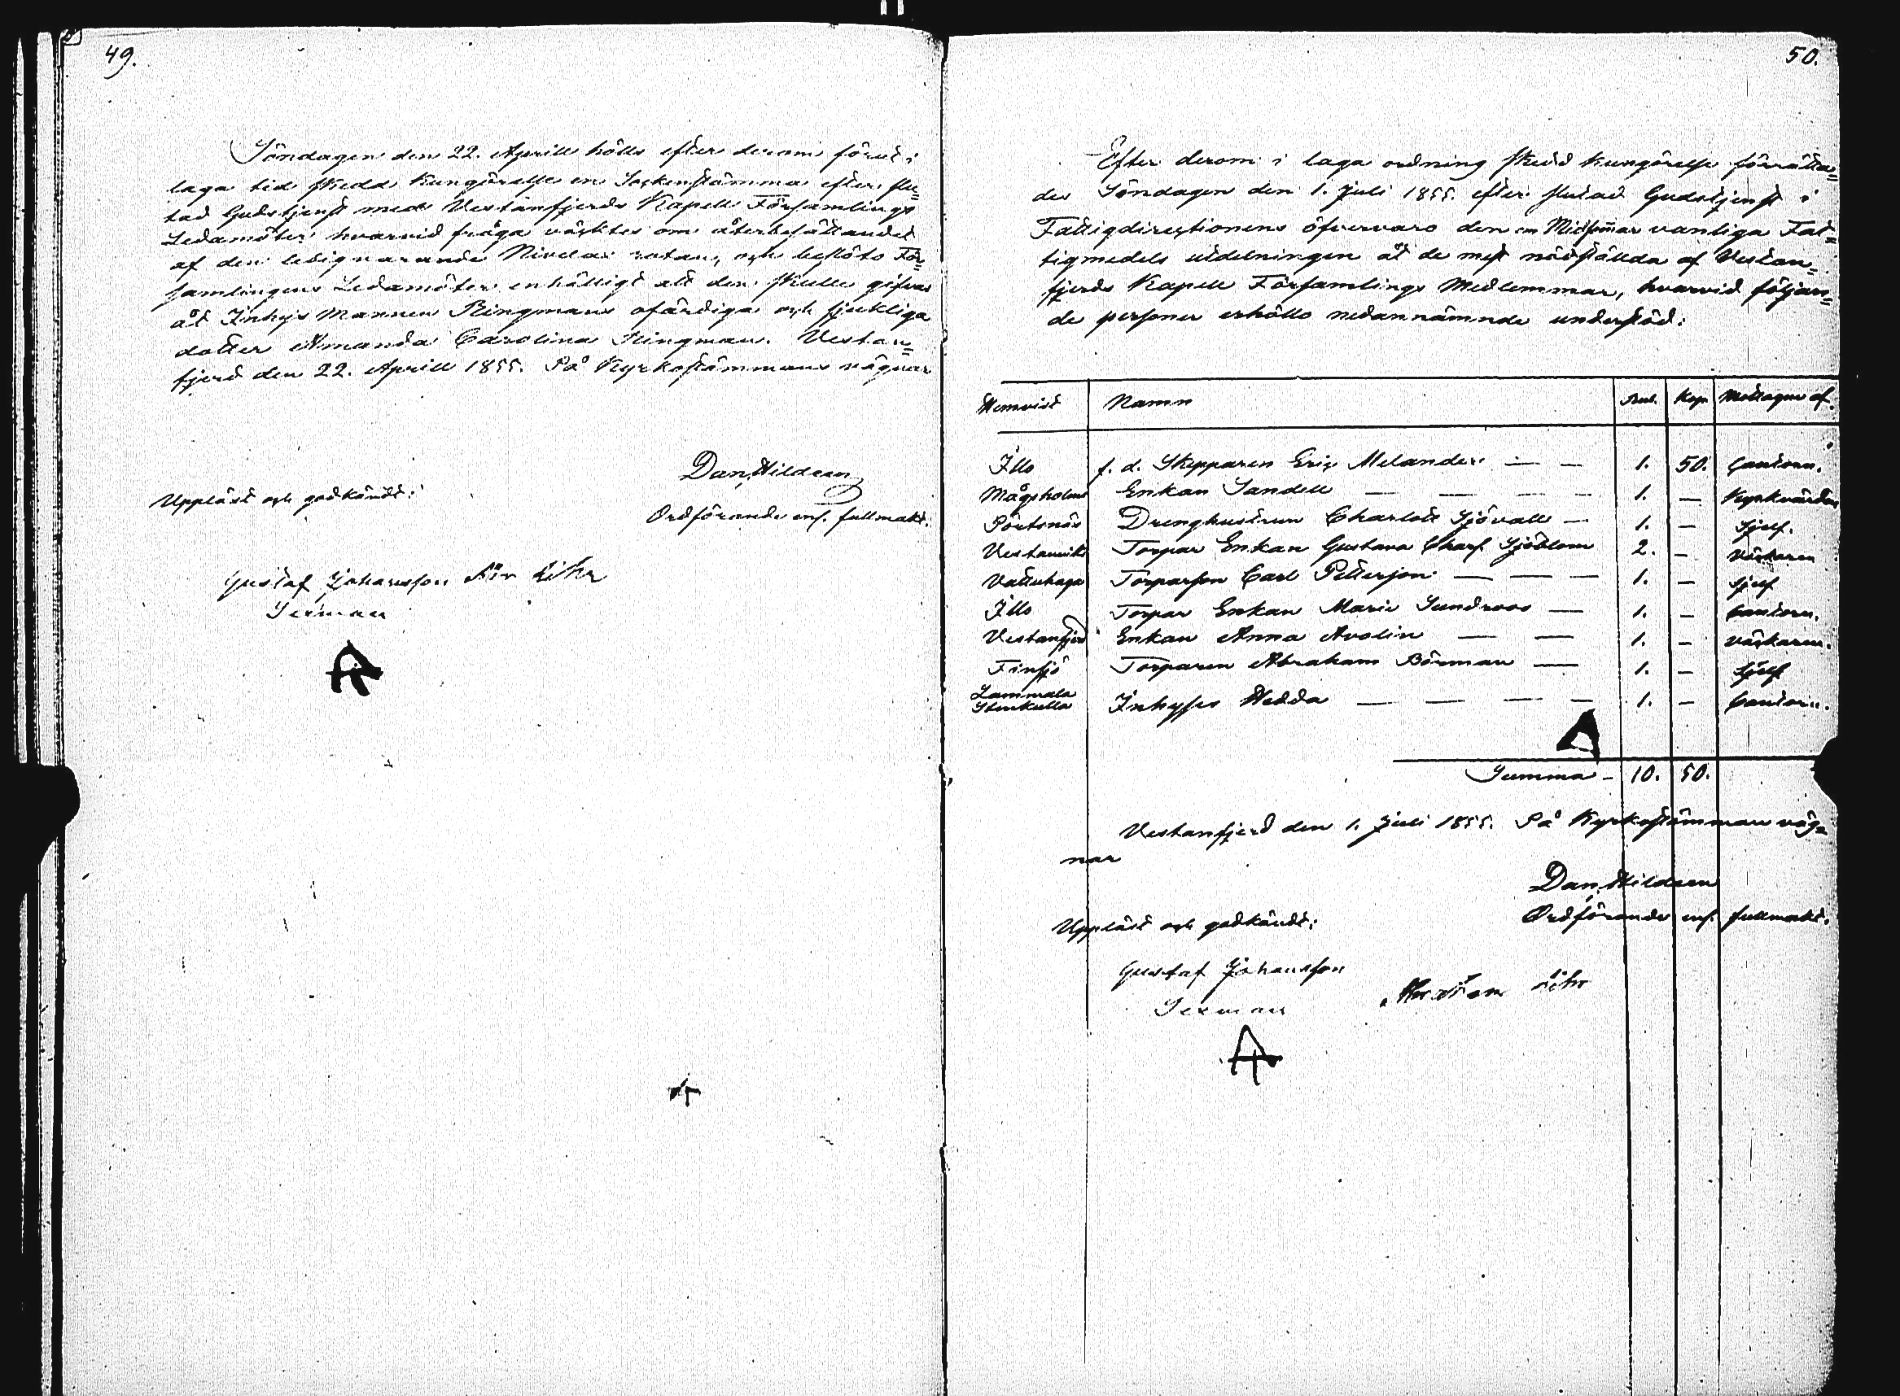 49.
Söndagen den 22. Aprill hölls efter derom förut i
laga tid skedd kungörelse en Sockenstämma efter slu=
tad Gudstjenst med Vestanfjerds Kapell Församlings
Ledamöter hvarvid fråga väcktes om återbesättandet
af den ledigvarande Nivelax rotan, och beslöto För=
samlingens Ledamöter enhälligt att den skulle gifvas
åt Inhys Mannen Ringmans ofärdiga och sjukliga
dotter Amanda Carolina Ringman. Vestan=
fjerd den 22. Aprill 1855. På Kyrkostämmans vägnar
Dan. Hildeen
Ordförande enl. fullmakt.
Uppläst och godkändt:
Gustaf Johansson
50.
Efter derom i laga ordning skedd kungörelse förrätta=
des Söndagen den 1. Juli 1855. efter slutad Gudstjenst i
Fattigdirectionens öfvervaro den om Midsommar vanliga Fat=
tigmedels utdelningen åt de mest nödstälda af Vestan=
fjerds Kapell Församlings Medlemmar, hvarvid följan=
de personer erhöllo nedannämnde understöd:
Hemvist Namn Rub. Kop. Mottagne af.
Illo f. d. Skepparen Eric Melander — — 1. 50. Cantorn.
Mågsholm Enkan Sandell — — — — 1. — Kyrkvärden
Pörtsnäs Drenghustrun Charlott Sjövall — 1. — Sjelf.
Vestanvik Torpar Enkan Gustava Charl. Sjöblom 2. — Väktaren
Vattuhaga Torparson Carl Petterson — — — 1. — Sjelf
Illo Torpar Enkan Maria Sundroos — 1. — Cantorn.
Vestanfjerd Enkan Anna Avolin — — 1. — Väktaren.
Finsjö Torparen Abraham Börman — 1. — Sjelf
Lammala
Stenkulla Inhyses Hedda — — — — 1. — Cantorn.
Summa – 10. 50.
Vestanfjerd den 1. Juli 1855. På Kyrkostämmans väg=
nar
Dan. Hildeen
Ordförande enl. fullmakt.
Uppläst och godkändt:
Gustaf Johansson